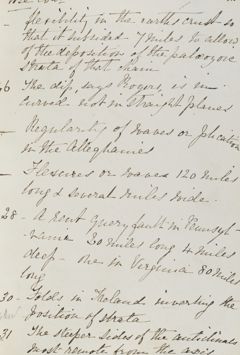 flexibility in the earths crust so
that it subsided 7 miles to allow
of the deposition of the palaeozoic
strata of that chain
26 The dip, says Rogers, is in
curved not in straight planes
— Regularity of waves or plication
in the Alleghanies
— Flexures or waves 120 miles
long & several miles wide.
28 - A rent query fault in Pennsyl-
vania 20 miles long 4 miles
deep - one in Virginia 80 miles
long
30 - Folds in Ireland inverting the
position of strata
31 The steeper sides of the anticlinals
most remote from the axis